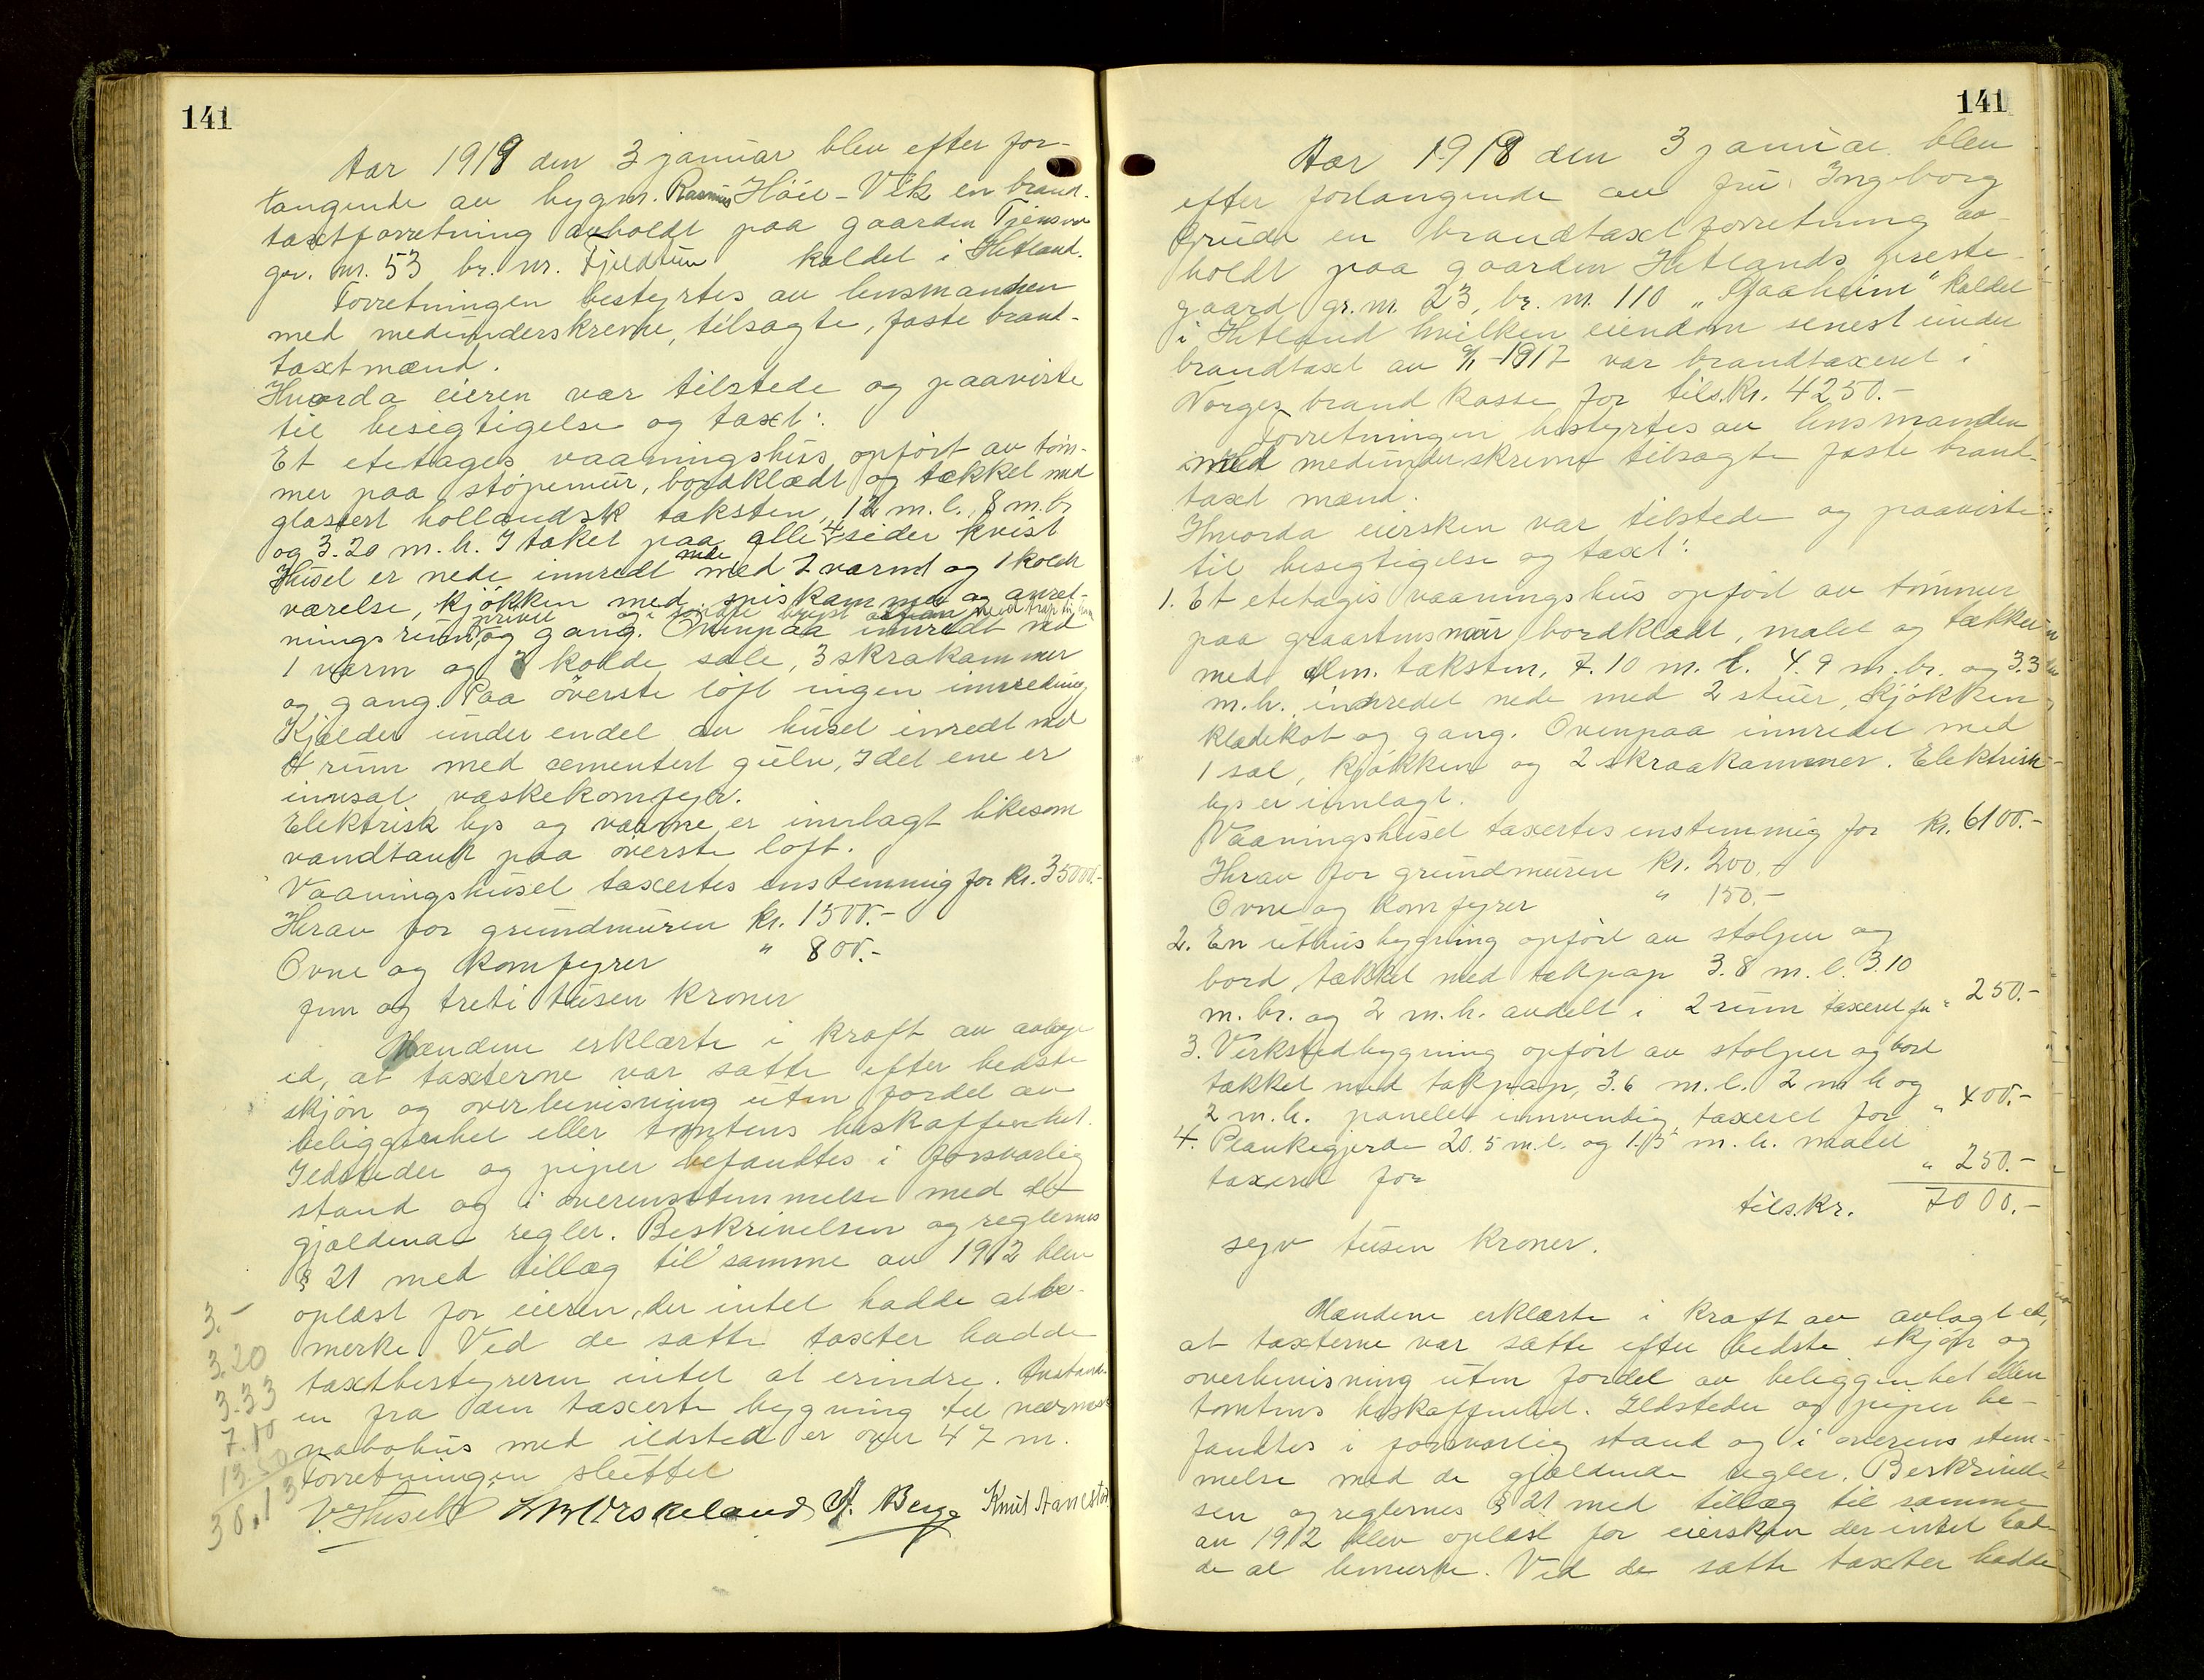 141
Aar 1919 den 3 januar blev efter for-
langende av bygm. Rasmus Höie-Vik en brand-
taxtforretning avholdt paa gaarden Tjensvol
gr. nr. 53 br. nr. Fjeldtun kaldet i Hetland.
Forretningen bestyrtes av lensmanden
med medunderskrevne, tilsagte, faste brand-
taxtmænd.
Hvorda eieren var tilstede og paaviste
til besigtigelse og taxt:
Et etetages vaaningshus opført av töm-
mer paa støpemur, bordklædt og tækket med
glasert hollandsk taksten, 12 m. l. 8 m. br
og 3.20 m. h. I taket paa alle 4 sider kvist
Huset er nede innredt med 2 varme og 1 koldt
værelse, kjøkken med spiskammer og anret-
ningsrum, privet og gang. Ovenpaa innredt med
1 varm og 3 kolde sale, 3 skrakammer
og gang. Paa överste löft ingen innredning
Kjælder under endel av huset inredt med
4 rum med cementert gulv, I det ene er
innsat vaskekomfyr.
Elektrisk lys og varme er innlagt likesom
vandtank paa överste loft.
Vaaningshuset taxertes enstemmig for kr. 35000.-
Herav for grundmuren kr. 1500.-
Ovne og komfyrer " 800.-
fem og treti tusen kroner
Mændene erklærte i kraft av avlagt
ed, at taxterne var satte efter bedste
skjön og overbevisning uten fordel av
beliggenhet eller tomtens beskaffenhet.
Ildsteder og piper befandtes i forsvarlig
stand og i overensstemmelse med de
gjældende regler. Beskrivelsen og reglernes
§ 21 med tillæg til samme av 1912 blev
oplæst for eieren, der intet hadde at be-
merke. Ved de satte taxter hadde
taxtbestyreren intet at erindre. Avstand-
en fra den taxerte bygning til nærmeste
nabohus med ildsted er over 47 m.
Forretningen sluttet
V. Huseb A. Berge Knut
3.-
3.20
3.33
7.10
13.50
30.13
141
Aar 1918 den 3 januar blev
efter forlangende av fru Ingeborg
Grude en brandtaxtforretning av-
holdt paa gaarden Hetlands preste-
gaard gr. nr. 23, br. nr. 110 "Haaheim" kaldet
i Hetland hvilken eiendom senest under
brandtaxt av 9/1-1917 var brandtaxeret i
Norges brandkasse for tils. kr. 4250.-
Forretningen bestyrtes av lensmanden
med medunderskrevne tilsagte faste brand-
taxt mænd.
Hvorda eiersken var tilstede og paaviste
til besigtigelse og taxt:
1. Et etetages vaaningshus opført av tömmer
paa graastensmur bordklædt, malet og tækket
med alm. taksten, 7.10 m. l. 4.9 m. br. og 3.3
m. h. innredet nede med 2 stuer, kjøkken
klædekot og gang. Ovenpaa innredet med
1 sal, kjøkken og 2 skraakammer. Elektrisk
lys er innlagt.
Vaaningshuset taxertes enstemmig for kr. 6100.-
Herav for grundmuren kr. 200.-
Ovne og komfyrer " 150.-
2. En uthusbygning opført av stolper og
bord, tækket med takpap 3.8 m. l. 3.10
m. br. og 2 m. h. avdelt i 2 rum taxeret for " 250.-
3. Verkstedbygning opført av stolper og bord
tækket med takpap, 3.6 m. l. 2 m h og
2 m. h. panelet innvendig, taxeret for " 400.-
4. Plankegjerde 20.5 m. l. og 1.15 m. h. malet
taxeret for " 250.-
tils. kr. 7000.-
syv tusen kroner.
Mændene erklærte i kraft av avlagt ed,
at taxterne var satte efter bedste skjön og
overbevisning uten fordel av beliggenhet eller
tomtens beskaffenhet. Ildsteder og piper be-
fandtes i forsvarlig stand og i overens stem-
melse med de gjældende regler. Beskrivel-
sen og reglernes § 21 med tillæg til samme
av 1912 blev oplæst for eiersken der intet had-
de at bemerke. Ved de satte taxter hadde